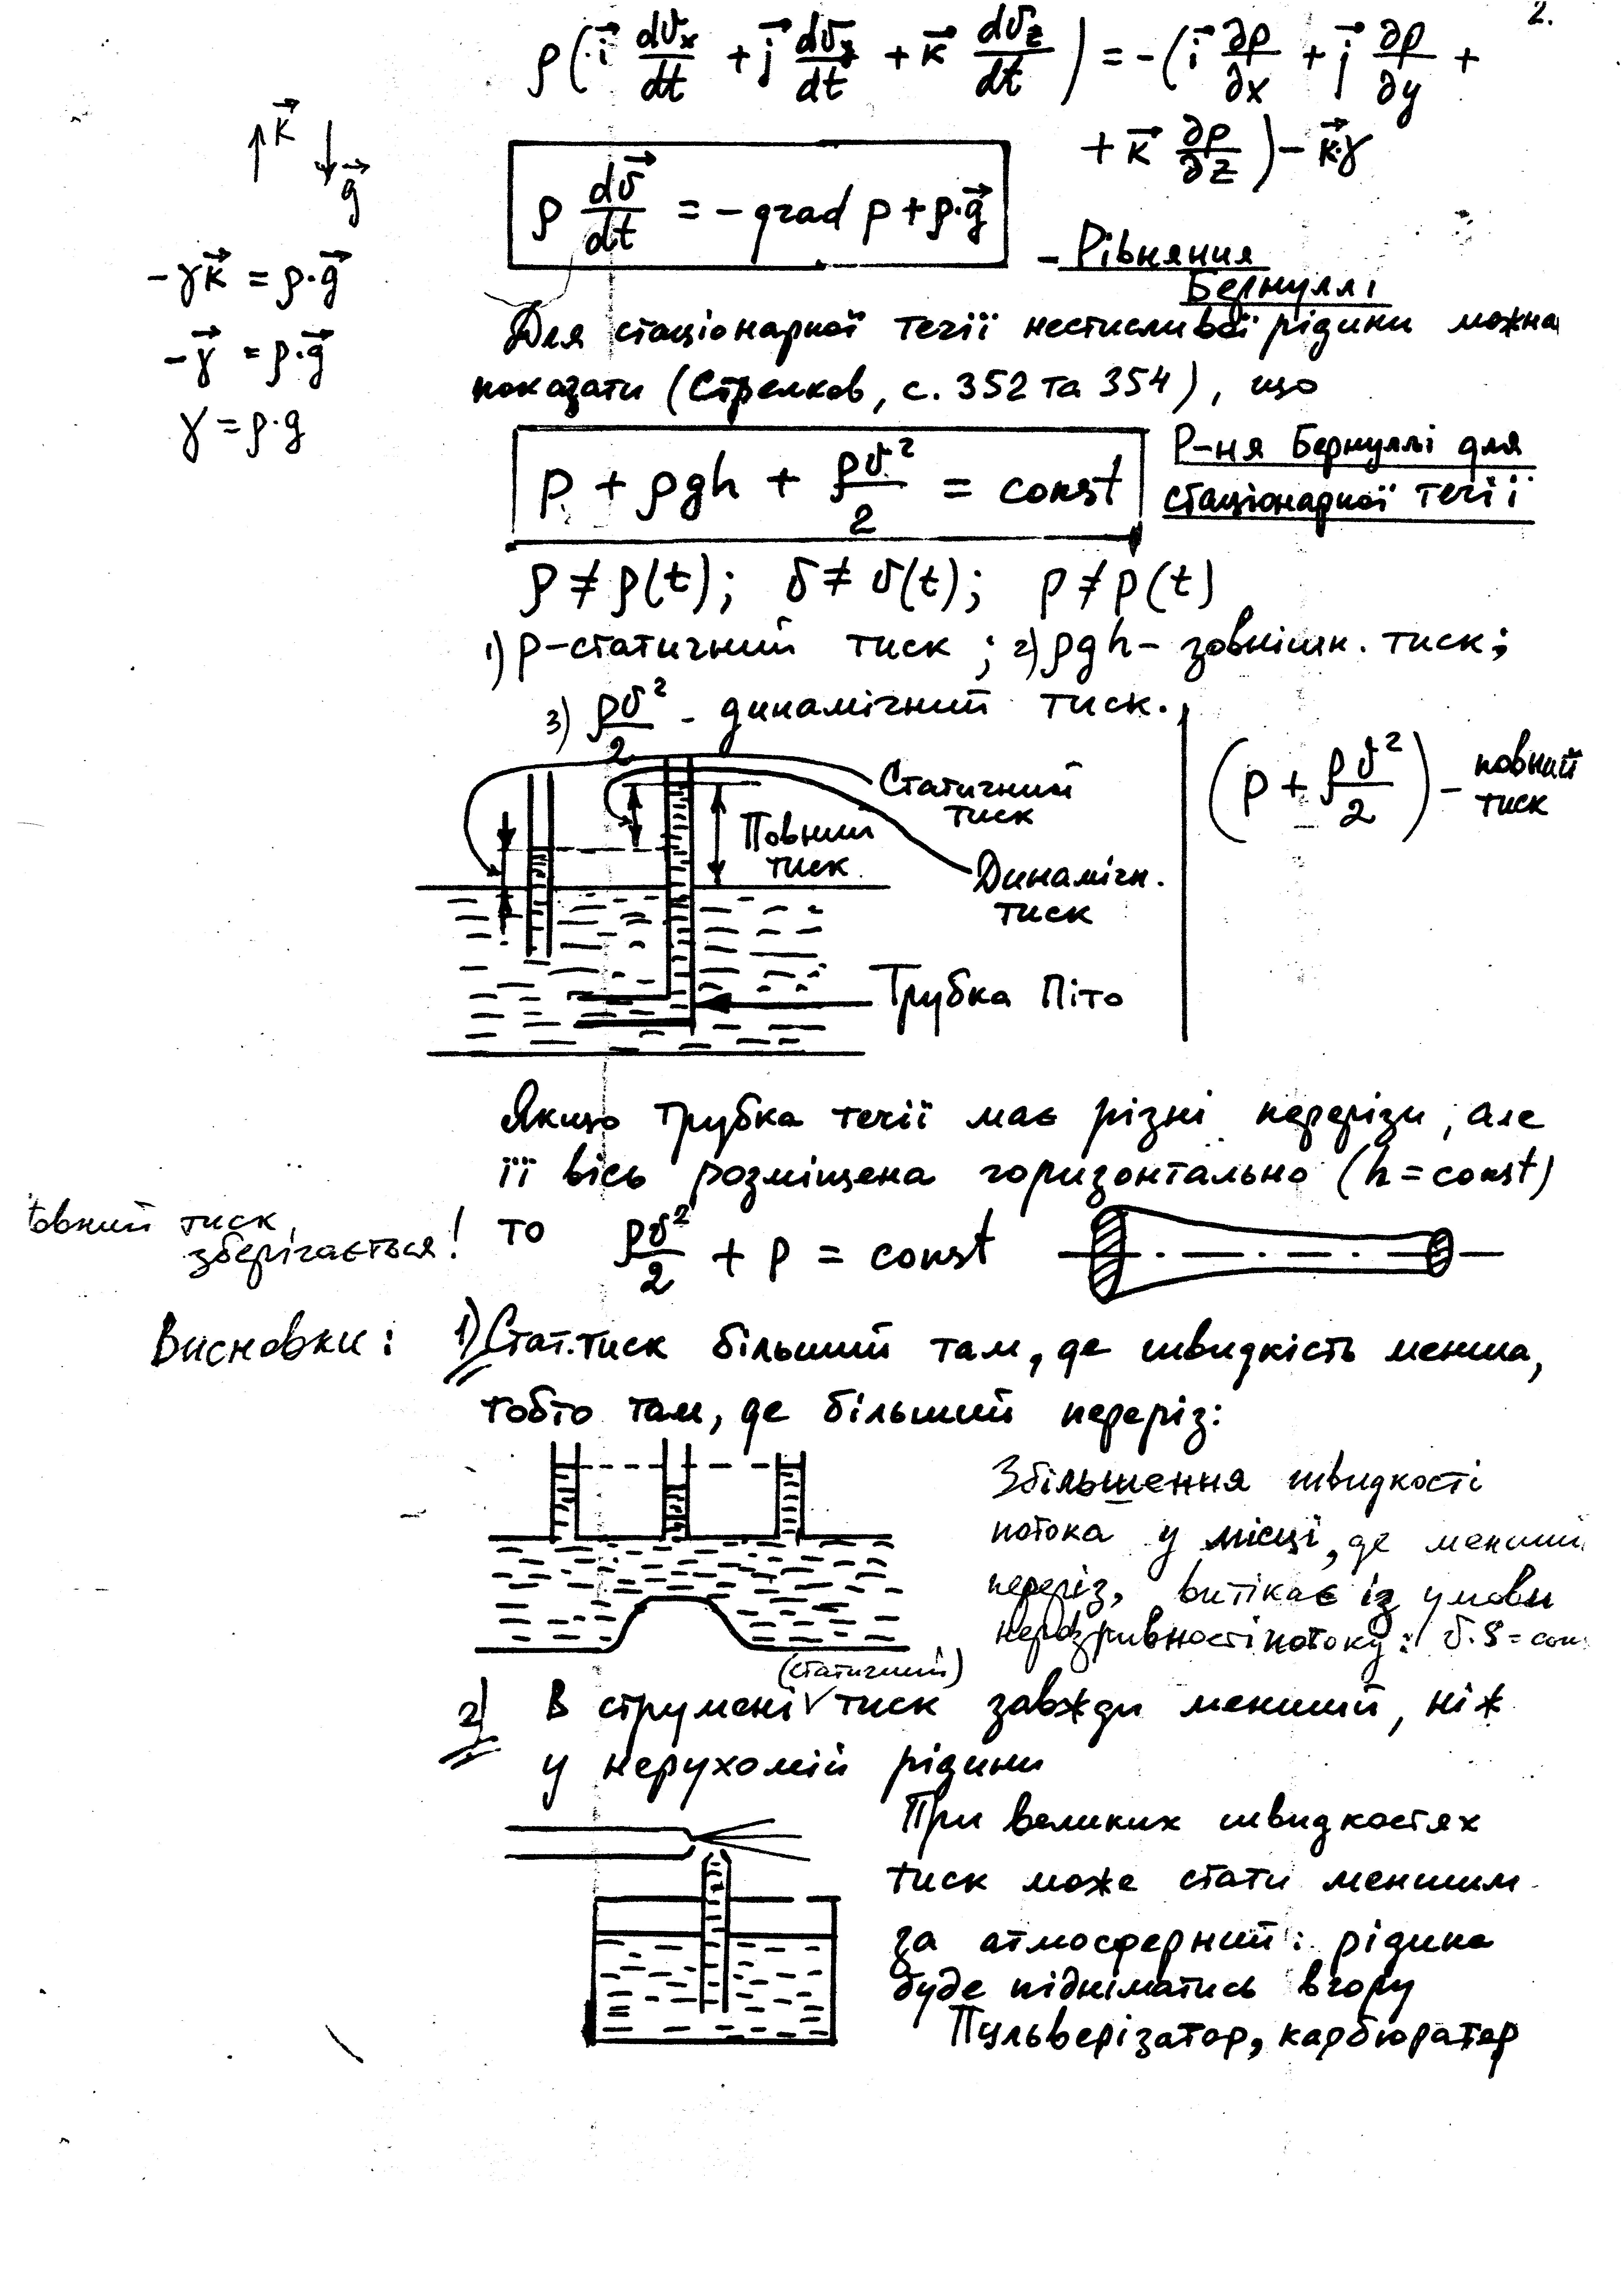 2.
ρ(i⃗ dvₓ/dt + j⃗ dv_y/dt + k⃗ dv_z/dt) = -(i⃗ ∂p/∂x + j⃗ ∂p/∂y +
+ k⃗ ∂p/∂z) - k⃗·γ
k⃗ g⃗
ρ dv⃗/dt = - grad p + ρ·g⃗
- Рівняння
Бернуллі
-γk⃗ = ρ·g⃗
-γ⃗ = ρ·g⃗
γ = ρ·g
Для стаціонарної течії нестисливої рідини можна
показати (Стрелков, с. 352 та 354), що
p + ρgh + ρv²/2 = const
Р-ня Бернуллі для
стаціонарної течії
ρ ≠ ρ(t); v ≠ v(t); p ≠ p(t)
1) p-статичний тиск; 2) ρgh - зовнішн. тиск;
3) ρv²/2 - динамічний тиск.
(p + ρv²/2) - повний
тиск
Статичний
тиск
Повний
тиск
Динамічн.
тиск
Трубка Піто
Якщо трубка течії має різні перерізи, але
її вісь розміщена горизонтально (h = const)
то ρv²/2 + p = const
Повний тиск
зберігається!
Висновки: 1) Стат. тиск більший там, де швидкість менша,
тобто там, де більший переріз:
Збільшення швидкості
потока у місці, де менший
переріз, витікає із умови
нерозривності потоку: v·S = con
(статичний)
2) В струмені тиск завжди менший, ніж
у нерухомій рідини
При великих швидкостях
тиск може стати меншим
за атмосферний: рідина
буде підніматись вгору
Пульверізатор, карбюратер